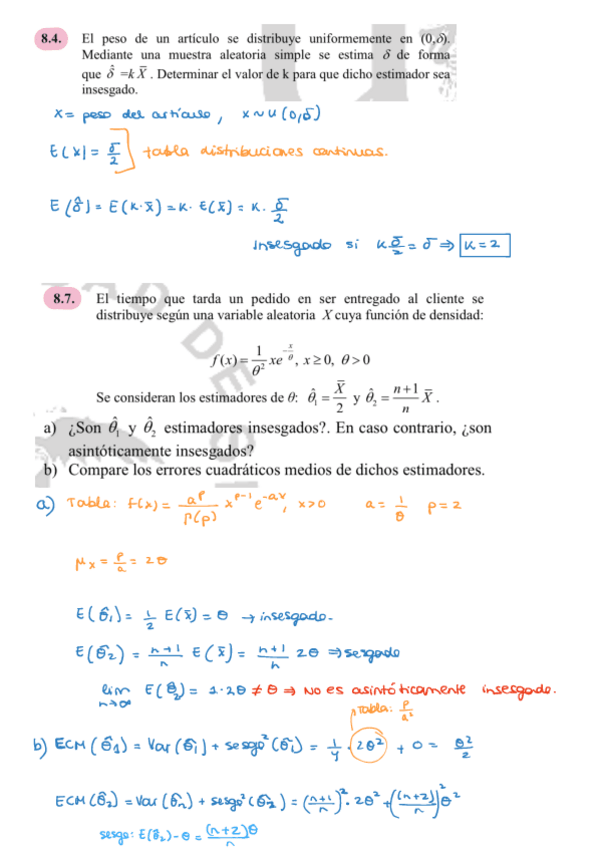 8.4. El peso de un artículo se distribuye uniformemente en (0,δ).
Mediante una muestra aleatoria simple se estima δ de forma
que δ̂ =k X̄ . Determinar el valor de k para que dicho estimador sea
insesgado.
X = peso del artículo, X ~ U (0,δ)
E(X) = δ/2 ] tabla distribuciones continuas.
E (δ̂) = E(K·x̄) = K· E(x̄) = K · δ/2
insesgado si K δ/2 = δ ⇒ K = 2
8.7. El tiempo que tarda un pedido en ser entregado al cliente se
distribuye según una variable aleatoria X cuya función de densidad:
f(x) = 1/θ² xe^(-x/θ), x ≥ 0, θ > 0
Se consideran los estimadores de θ: θ̂₁ = X̄/2 y θ̂₂ = (n+1)/n X̄ .
a) ¿Son θ̂₁ y θ̂₂ estimadores insesgados?. En caso contrario, ¿son
asintóticamente insesgados?
b) Compare los errores cuadráticos medios de dichos estimadores.
a) Tabla: f(x) = a^p/Γ(p) x^(p-1) e^(-ax), x>0 a = 1/θ p = 2
μx = p/a = 2θ
E(θ̂₁) = 1/2 E(x̄) = θ → insesgado.
E(θ̂₂) = (n+1)/n E(x̄) = (n+1)/n 2θ ⇒ sesgado
lim n→∞ E(θ̂₂) = 1·2θ ≠ θ ⇒ No es asintóticamente insesgado.
Tabla: p/a²
b) ECM (θ̂₁) = Var(θ̂₁) + sesgo²(θ̂₁) = 1/4 · 2θ² + 0 = θ²/2
ECM (θ̂₂) = Var (θ̂₂) + sesgo² (θ̂₂) = ((n+1)/n)² · 2θ² + ((n+2)/n)² θ²
sesgo: E(θ̂₂) - θ = (n+2)θ/n